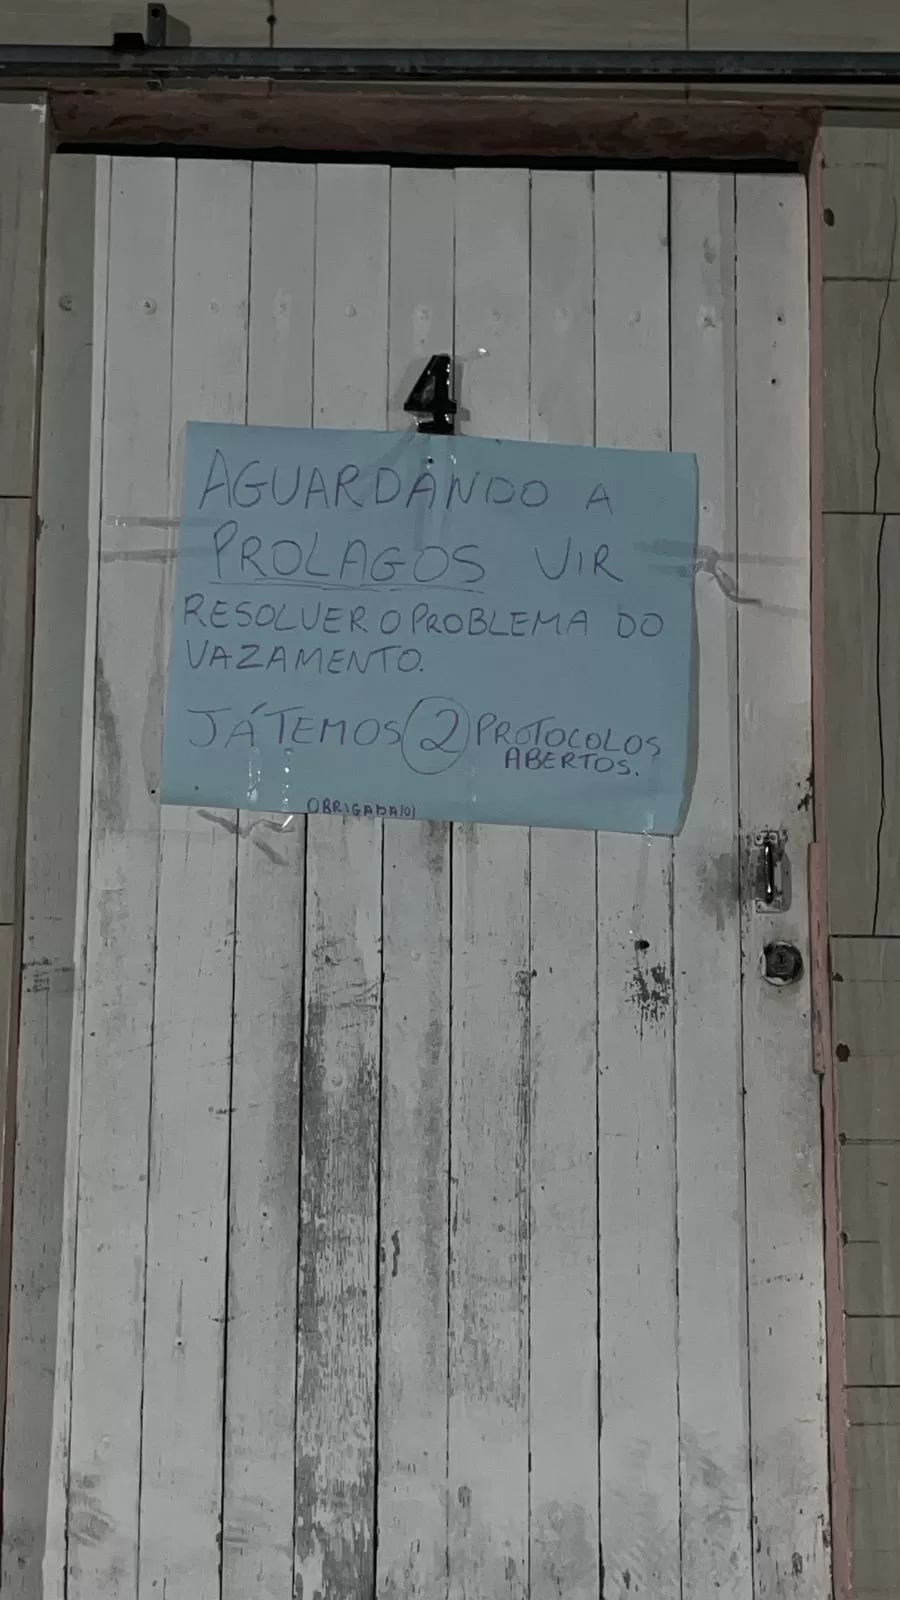 4
AGUARDANDO A
PROLAGOS VIR
RESOLVER O PROBLEMA DO
VAZAMENTO.
JÁ TEMOS 2 PROTOCOLOS
ABERTOS.
OBRIGADA(O)